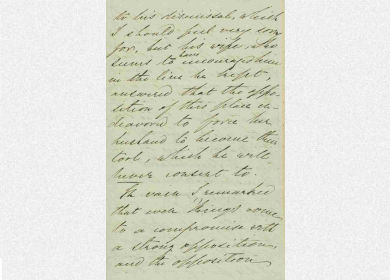 to his dismissal, which
I should feel very sorry
for, but his wife, who
seems to have encouraged him
in the line he kept,
answered that the oppo-
sition of this place en-
deavored to force her
husband to become their
tool, which he will
never consent to.
In vain I remarked
that even Kings come
to a compromise with
a strong opposition,
and the opposition